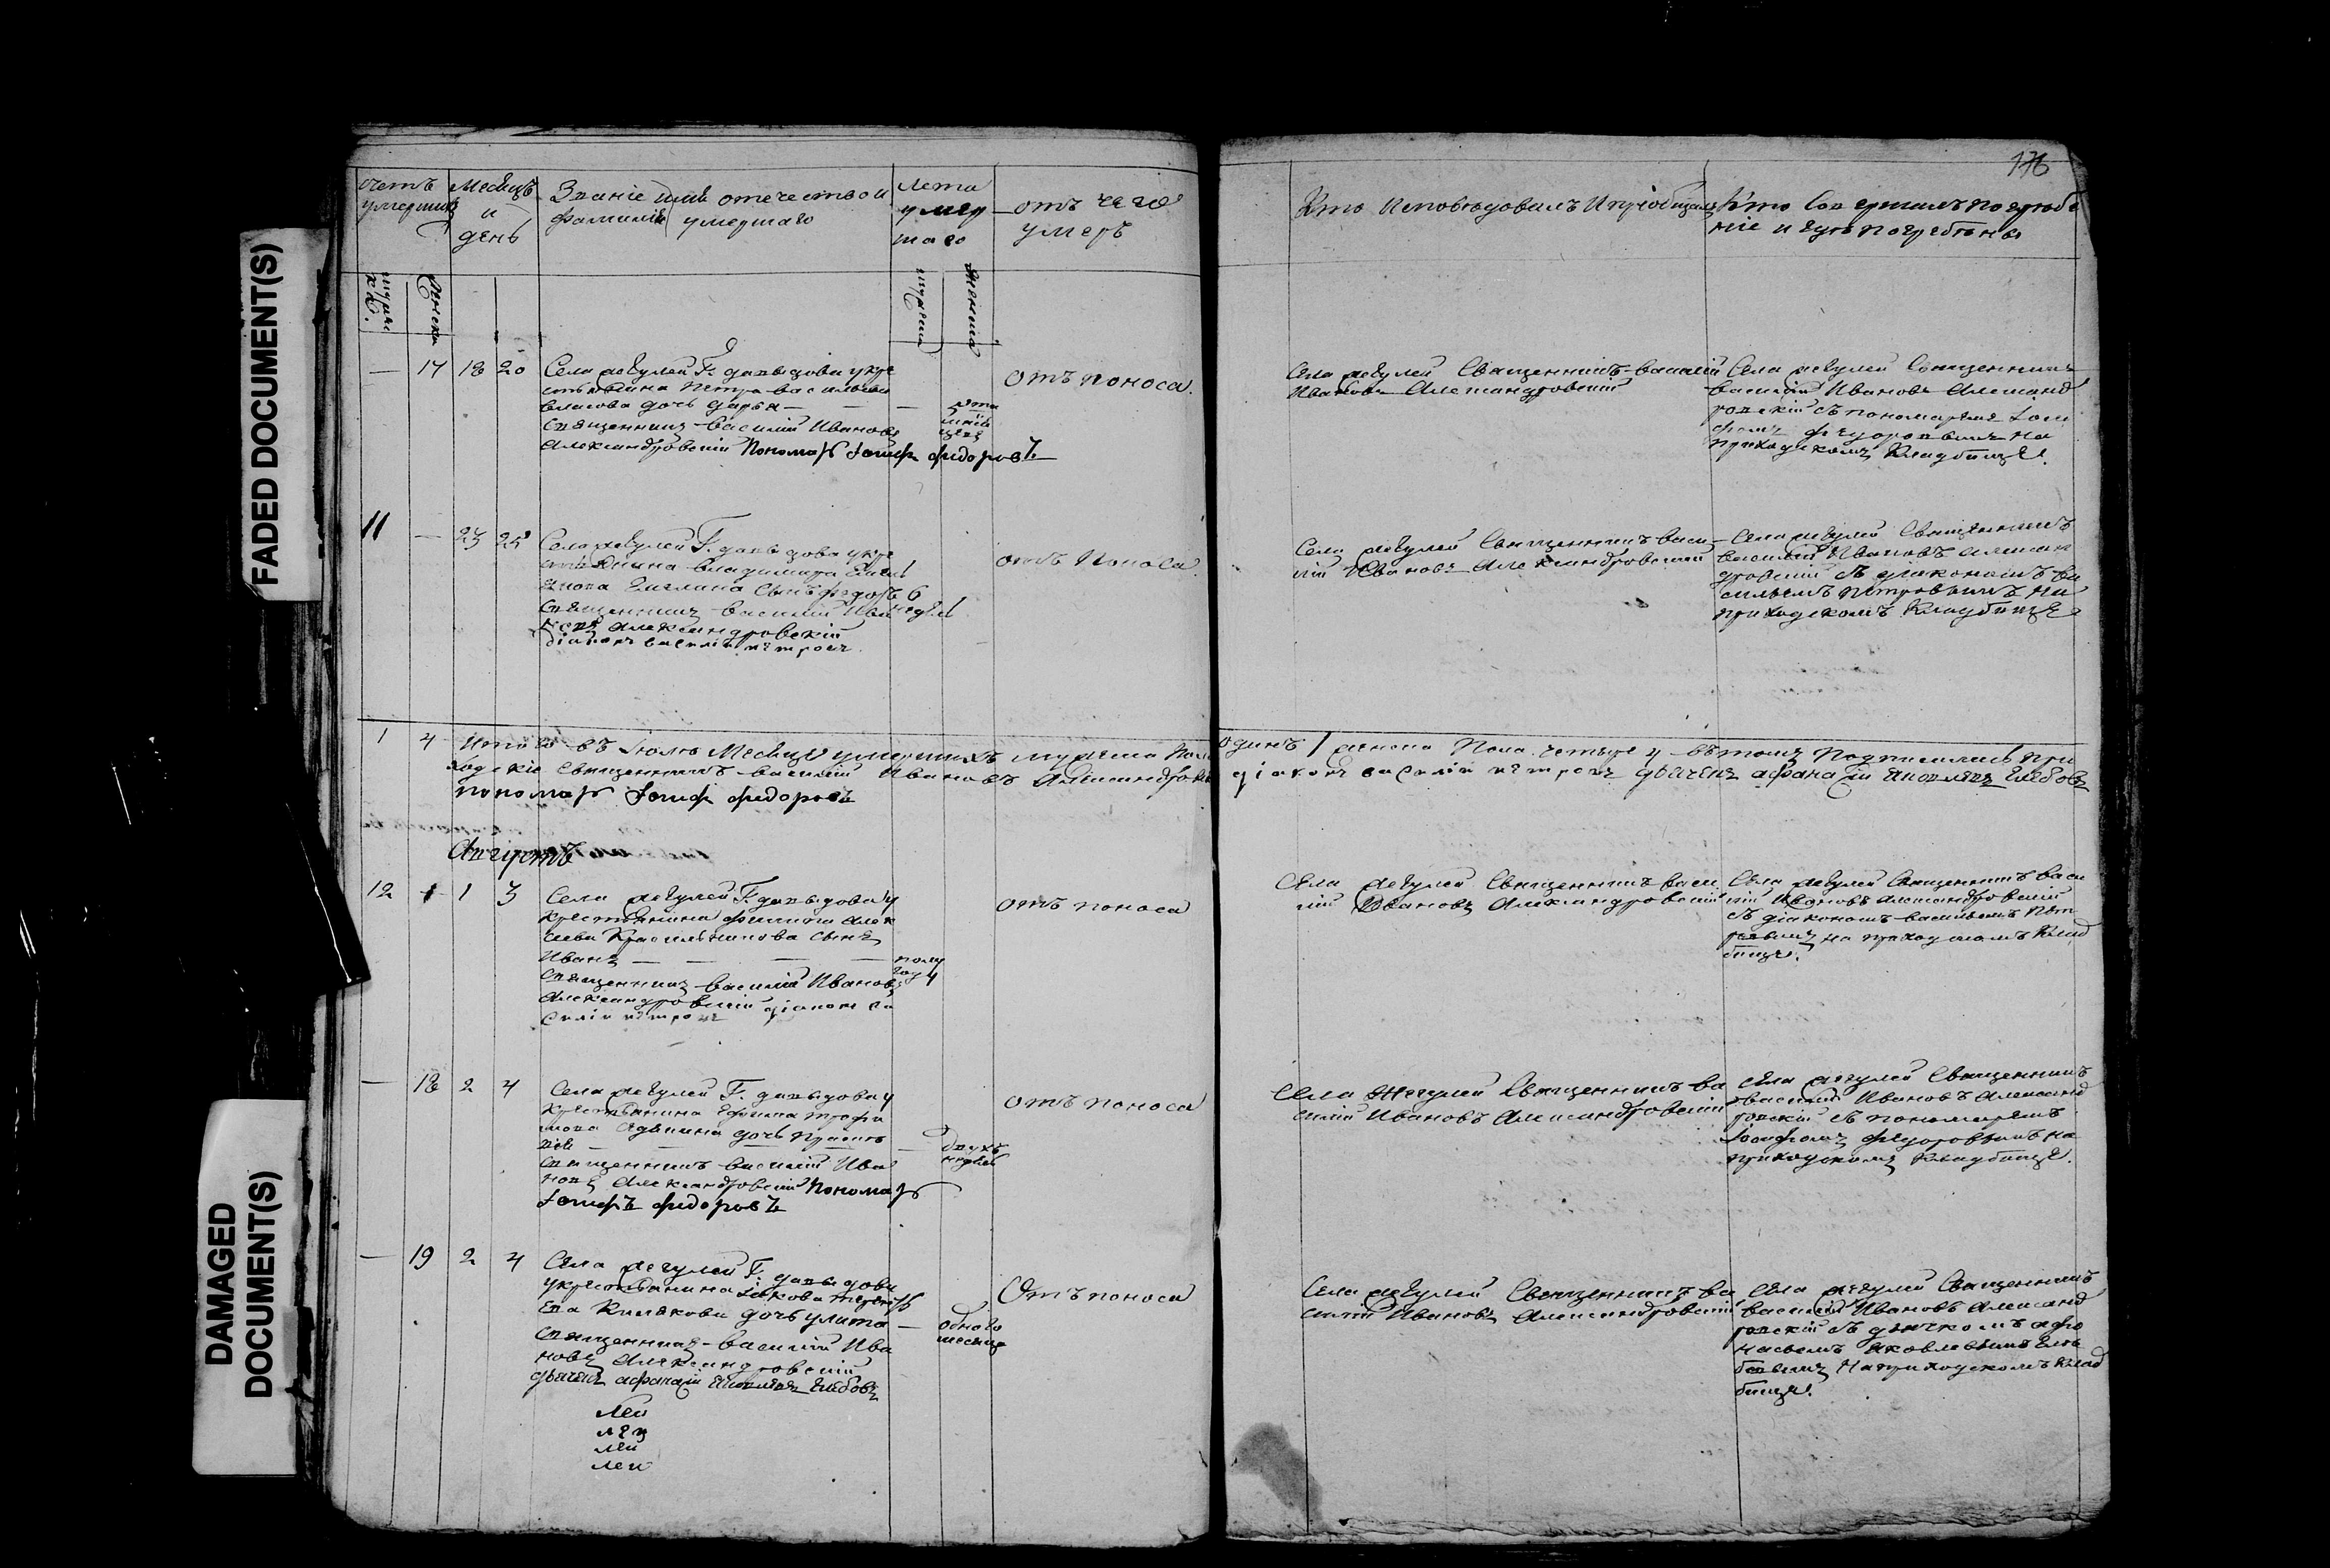 FADED DOCUMENT(S)
DAMAGED
DOCUMENT(S)
176
счетъ
умершихъ
Месяцъ
и
день
Званіе имя отечество и
фамилія умершаго
лета
умер
шаго
отъ чего
умеръ
Кто исповедовалъ и приобщалъ
Кто совершалъ погребе
ніе и где погребены
— 17 18 20
Села Жегулей Г. давыдова у кре
стьянина Петра васильева
власова дочь дарья — — —
священникъ василій Ивановъ
Александровскій Пономарь Іосифъ федоровъ
отъ поноса.
Села Жегулей Священникъ василій
Ивановъ Александровскій
Села Жегулей Священникъ
василій Ивановъ Александ
ровскій съ пономаремъ Іоси
фомъ федоровымъ на
приходскомъ Кладбище.
11 — 23 25
Села Жегулей Г. давыдова у кре
стьянина владимира
сынъ федоръ 6
священникъ василій Ива недель
новъ Александровскій
діаконъ василій петровъ
отъ поноса.
Села Жегулей Священникъ васи
лій Ивановъ Александровскій
Села Жегулей Священникъ
василій Ивановъ Алексан
дровскій съ діакономъ ва
сильемъ Петровымъ на
приходскомъ Кладбище
1 4 Итого въ Іюле Месяце умершихъ мужеска Пола одинъ 1 женска Пола четыре 4 въ томъ Подписались При
ходскіе священникъ василій Ивановъ Александровскій діаконъ василій петровъ дьячекъ афанасій Яковлевъ Глебовъ
пономарь Іосифъ федоровъ
Августъ
12 1 3
Села Жегулей Г. давыдова у
крестьянина филипа Алек
сеева Красильникова сынъ
Иванъ — — — — полу
году
священникъ василій Ивановъ
Александровскій діаконъ ва
силій петровъ
отъ поноса
Села Жегулей Священникъ васи
лій Ивановъ Александровскій
Села Жегулей Священникъ васи
лій Ивановъ Александровскій
съ діакономъ васильемъ Пет
ровымъ на приходскомъ Клад
бище.
— 18 2 4
Села Жегулей Г. давыдова у
крестьянина Ефима трофи
мова дочь
двухъ
недель
священникъ василій Ива
новъ Александровскій Пономарь
Іосифъ федоровъ
отъ поноса
Села Жегулей Священникъ ва
силій Ивановъ Александровскій
Села Жегулей Священникъ
василій Ивановъ Александ
ровскій съ пономаремъ
Іосифомъ федоровымъ на
приходскомъ Кладбище.
— 19 2 4
Села Жегулей Г. давыдова
у крестьянина Іакова теренть
ева дочь улита — одного
месяца
священникъ василій Ива
новъ Александровскій
дьячекъ афанасій Яковлевъ Глебовъ
Отъ поноса
Села Жегулей Священникъ ва
силій Ивановъ Александровскій
Села Жегулей Священникъ
василій Ивановъ Александ
ровскій съ дьячкомъ афа
насьемъ Яковлевымъ Гле
бовымъ на приходскомъ клад
бище.